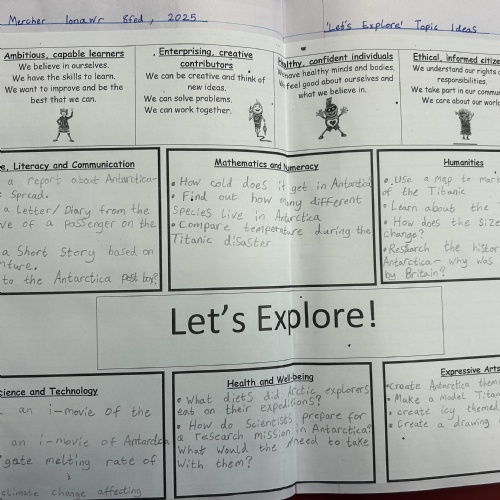 Mercher Ionawr 8fed, 2025
'Let's Explore' Topic Ideas
Ambitious, capable learners
We believe in ourselves.
We have the skills to learn.
We want to improve and be the
best that we can.
Enterprising, creative
contributors
We can be creative and think of
new ideas.
We can solve problems.
We can work together.
healthy, confident individuals
have healthy minds and bodies.
feel good about ourselves and
what we believe in.
Ethical, informed citize
We understand our rights
responsibilities.
We take part in our commu
We care about our worl
e, Literacy and Communication
a report about Antarctica-
Spread.
a Letter/ Diary from the
ve of a passenger on the
a Short Story based on
nture.
to the Antarctica post box?
Mathematics and Numeracy
• How cold does it get in Antarctica
• Find out how many different
species live in Antarctica
• Compare temperature during the
Titanic disaster
Humanities
• Use a map to mar
of the Titanic
• Learn about the
• How does the size
change?
• Research the histor
Antarctica- why was
by Britain?
Let's Explore!
Science and Technology
an i-movie of the
an i-movie of Antarctica
gate melting rate of
climate change affecting
Health and Well-being
• What diets did Arctic explorers
eat on their expeditions?
• How do Scientists prepare for
a research mission in Antarctica?
What would the need to take
with them?
Expressive Arts
• Create Antarctica them
• Make a model Titan
• create icy themed
• Create a drawing